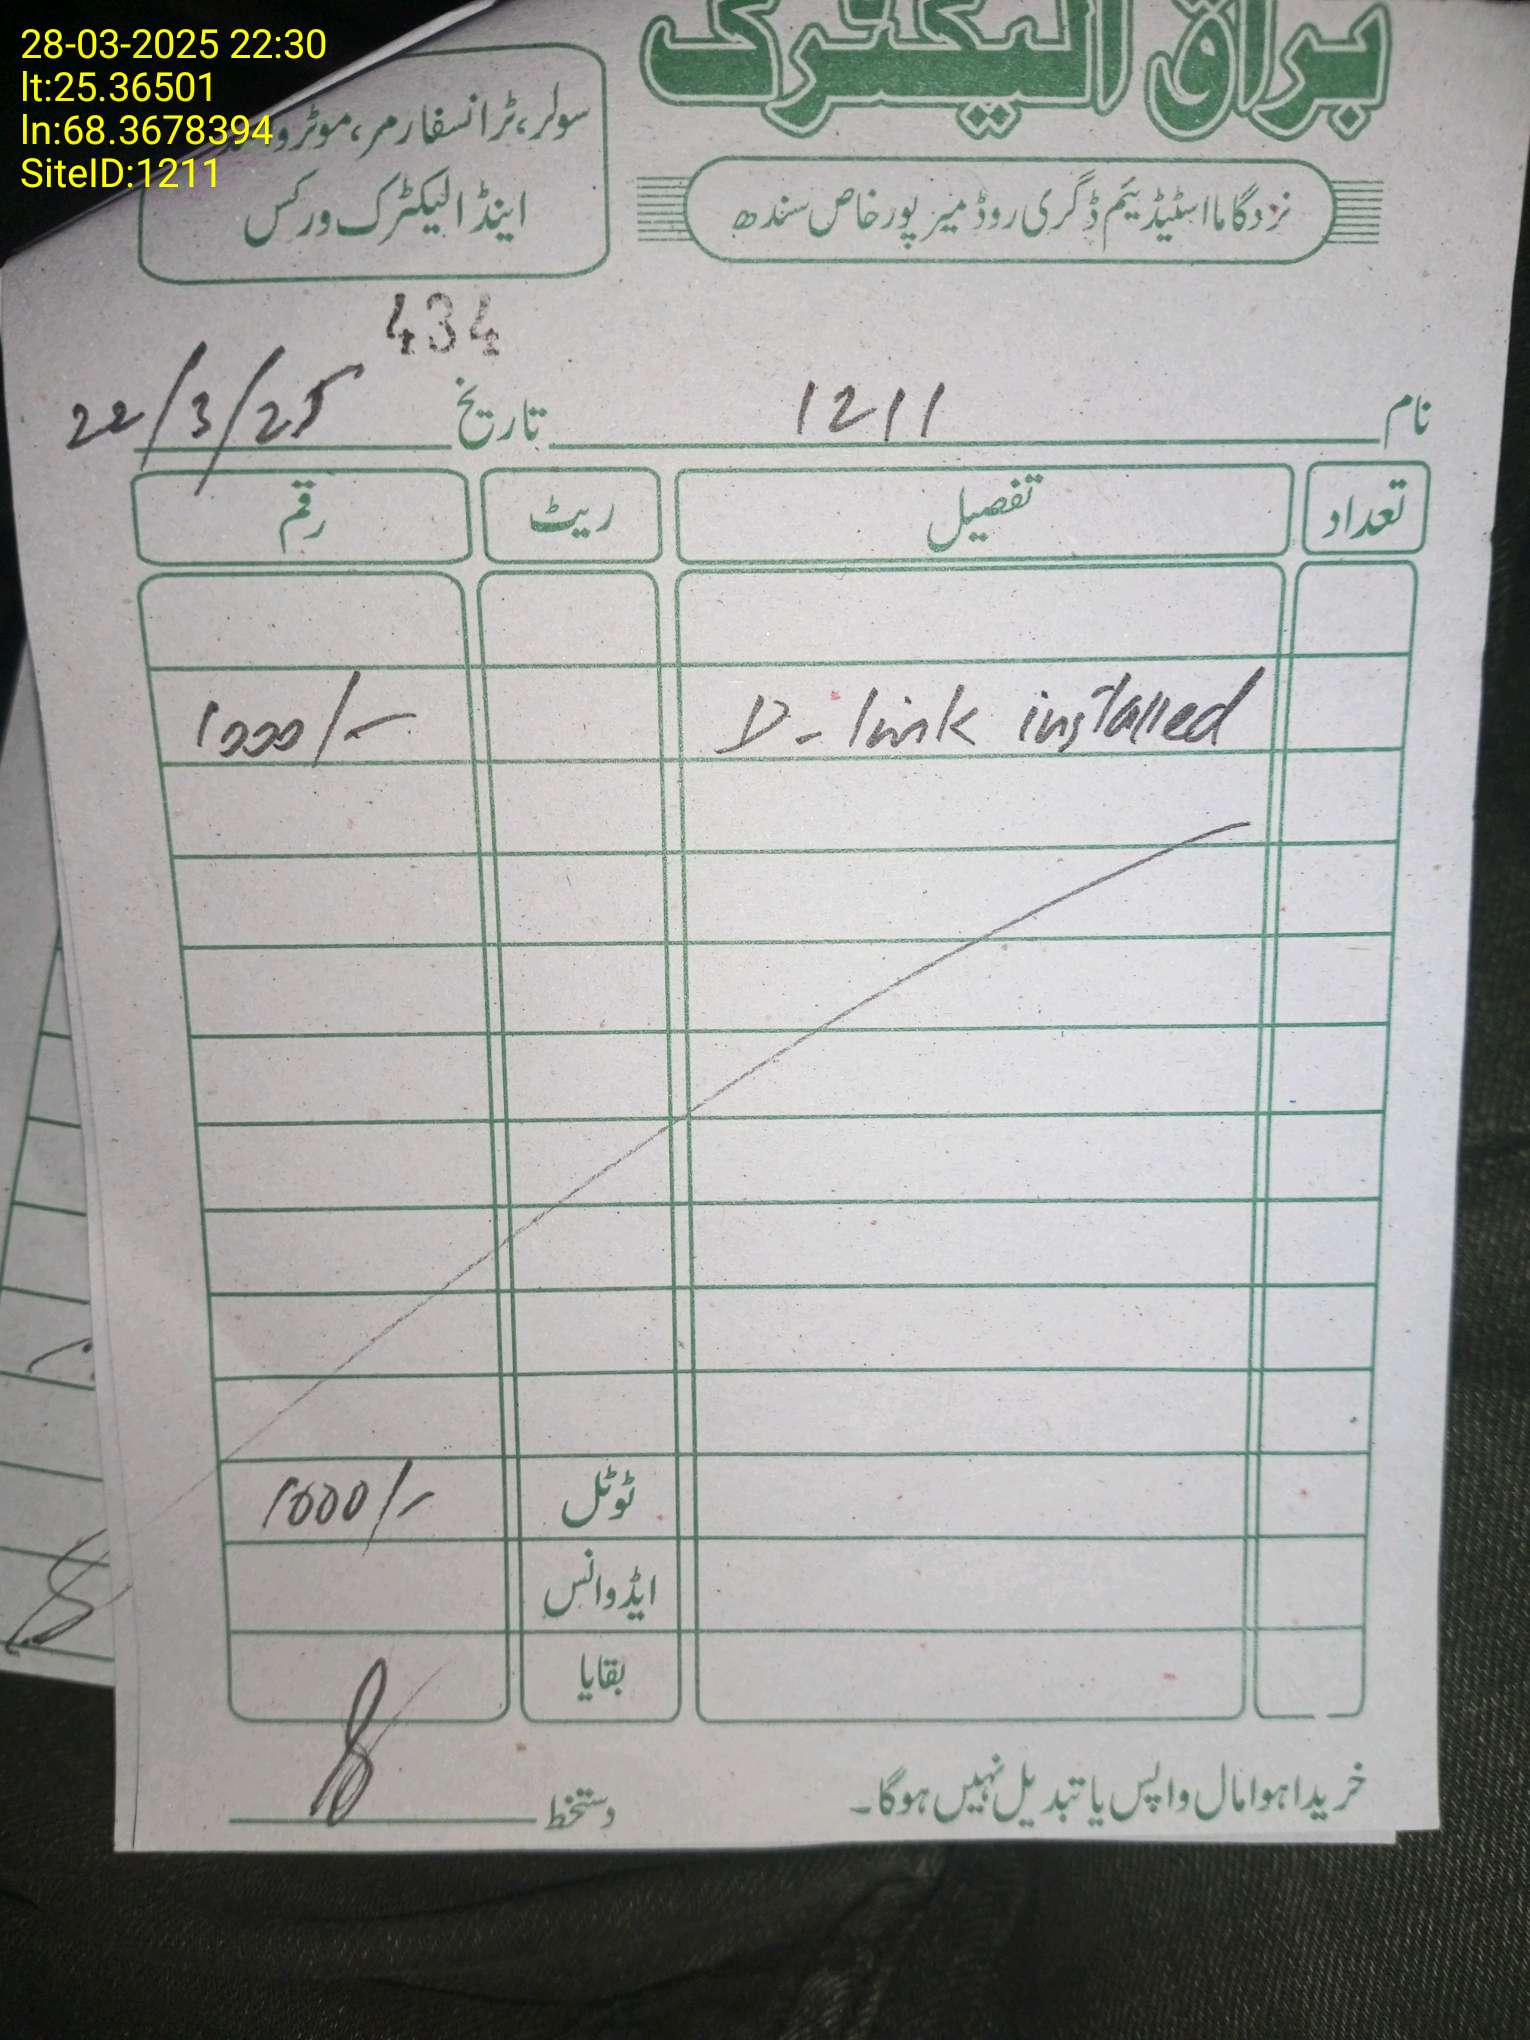 28-03-2025 22:30
lt:25.36501
ln:68.3678394
SiteID:1211
براق الیکٹرک
سولر، ٹرانسفارمر، موٹر
اینڈ الیکٹرک ورکس
نزد گاما اسٹیڈیئم ڈگری روڈ میرپورخاص سندھ
434
نام 1211 تاریخ 22/3/25
تعداد تفصیل ریٹ رقم
D-link installed 1000/-
ٹوٹل 1000/-
ایڈوانس
بقایا
خریدا ہوا مال واپس یا تبدیل نہیں ہوگا۔ دستخط